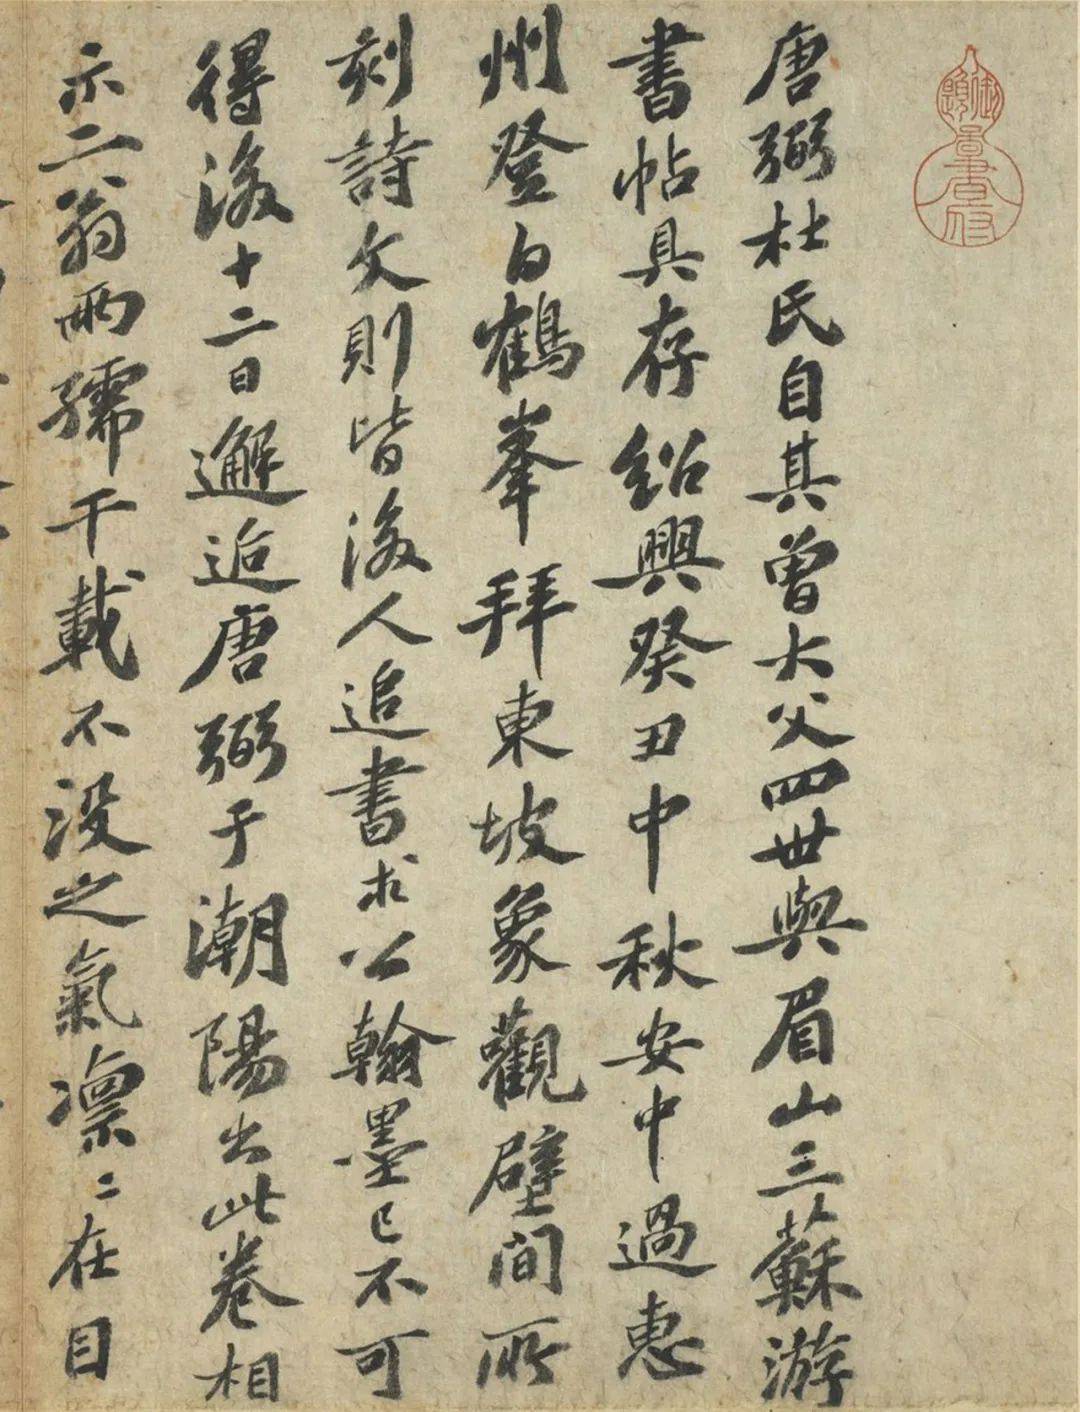 唐弼杜氏自其曾大父四世與眉山三蘇游
書帖具存紹興癸丑中秋安中過惠
州登白鶴峯拜東坡象觀壁間所
刻詩文則皆後人追書求公翰墨已不可
得後十二日邂逅唐弼于潮陽出此卷相
示二翁兩孺千載不沒之氣凛〻在目
御題
圖書府